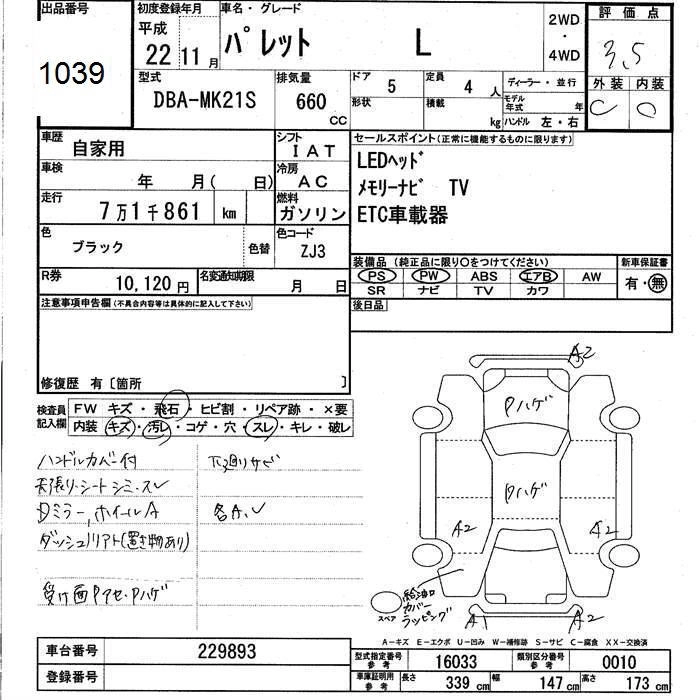 出品番号 初度登録年月 車名・グレード 2WD・4WD 評価点
1039 平成22 11月 パレット L 3,5
型式 排気量 ドア 定員 ディーラー・並行 外装 内装
DBA-MK21S 660CC 5 4人 C C
形状 積載 kg モデル年式 年 ハンドル 左・右
車歴 シフト セールスポイント(正常に機能するものに限ります)
自家用 IAT LEDヘッド
車検 年 月(日) 冷房 AC メモリーナビ TV
走行 燃料
7万1千861 km ガソリン ETC車載器
色 色替 色コード
ブラック ZJ3
装備品(純正品に限り○をつけてください) 新車保証書
PS PW ABS エアB AW 有・無
SR ナビ TV カワ
R券 10,120円 名変通知期限 月 日
注意事項申告欄(不具合内容等は具体的に記入して下さい) 後日品
修復歴 有〔箇所 〕
検査員記入欄 FW キズ・飛石・ヒビ割・リペア跡・×要
内装 キズ・汚レ・コゲ・穴・スレ・キレ・破レ
ハンドルカバー付 下廻りサビ
天張り・シートシミ・スレ
Dミラー,ホイールA 各A.U
ダッシュリアト(置き物あり)
受け面Pアセ・Pハゲ
A2
Pハゲ
Pハゲ
A2 A2
給油口カバーラッピング
スペア
A1 A2
A－キズ E－エクボ U－凹み W－補修跡 S－サビ C－腐食 XX－交換済
車台番号 229893
登録番号
型式指定番号参考 16033 類別区分番号参考 0010
車庫証明用参考 長さ 339cm 幅 147cm 高さ 173cm